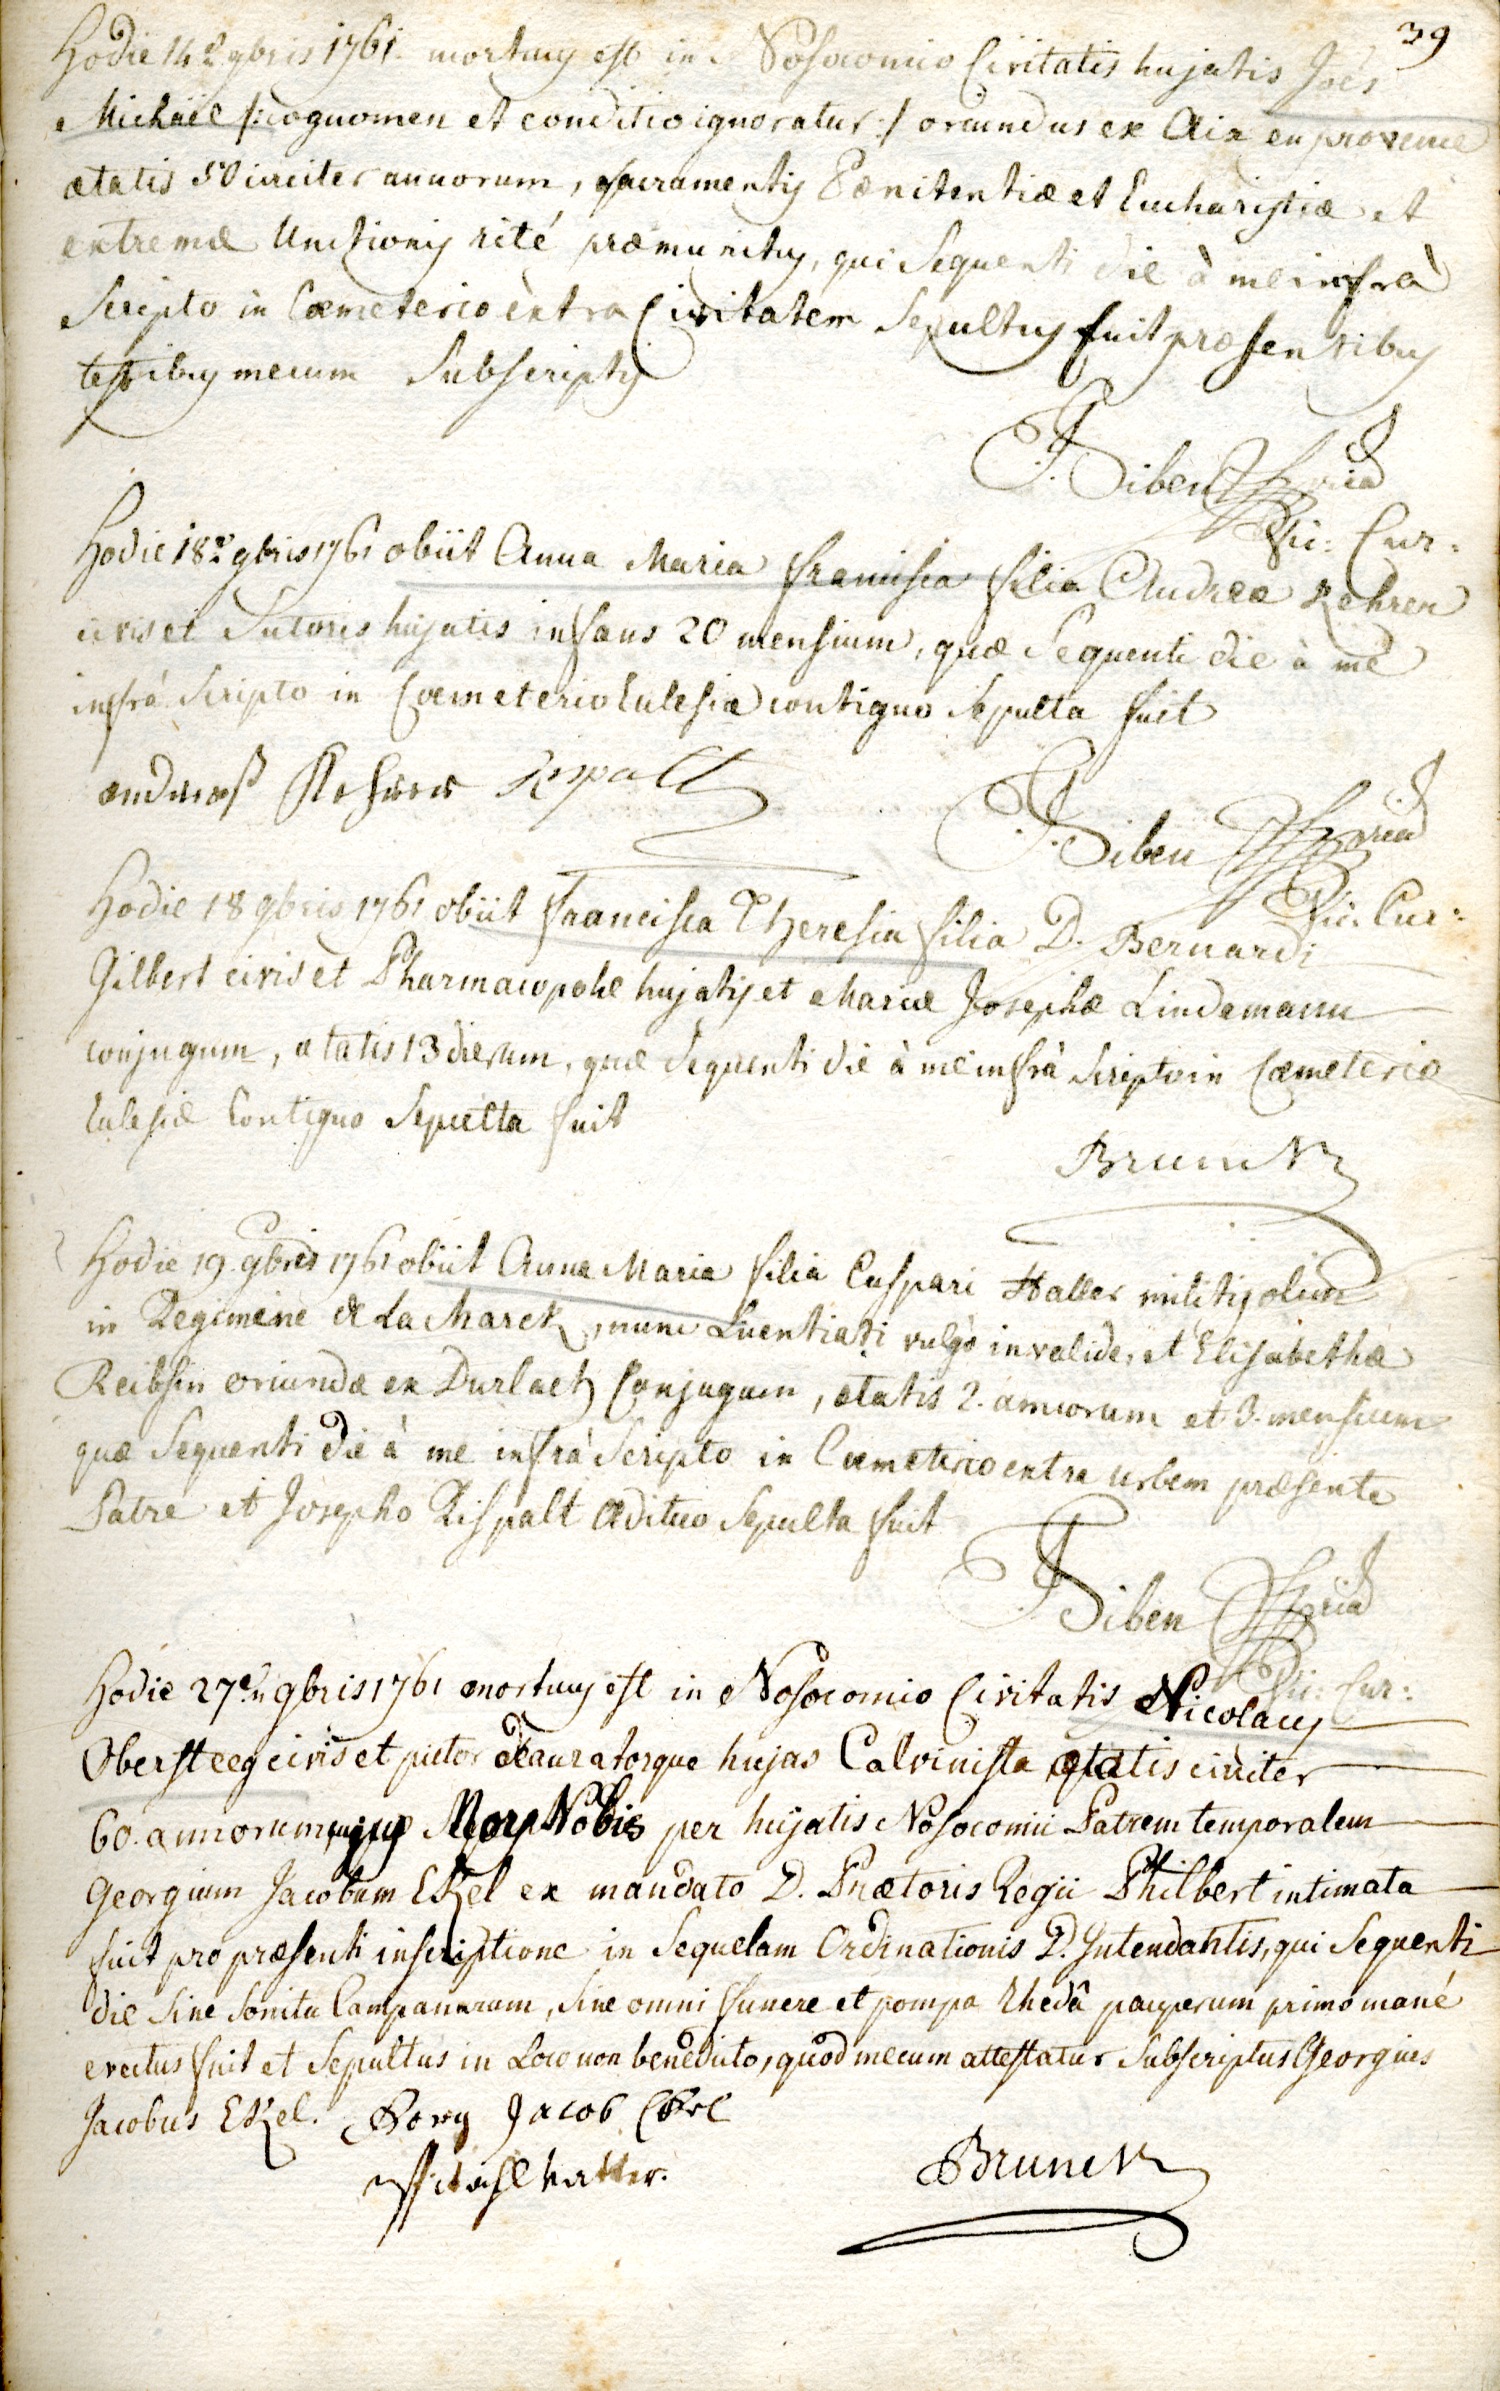 39
Hodie 14 9bris 1761. mortuus est in Nosocomio Civitatis hujatis Joës
Michaël /: cognomen et conditio ignoratur :/ oriundus ex Aix en provence
ætatis 50 circiter annorum, sacramentis Pœnitentiæ et Eucharistiæ et
extremæ Unctionis rité præmunitus, qui sequenti die à me infrà
scripto in Cœmeterio extra Civitatem sepultus fuit præsentibus
testibus mecum subscriptis
J. Siben
Vic: Cur:
Hodie 18 9bris 1761 obiit Anna Maria francisca filia Andreæ Rehren
civis et sutoris hujatis infans 20 mensium, quæ sequenti die à me
infrà scripto in Cœmeterio Eclesiæ contiguo sepulta fuit
andreas Rispalt
J. Siben
Vic: Cur:
Hodie 18 9bris 1761 obiit francisca Theresia filia D. Bernardi
Gilbert civis et Pharmacopolæ hujatis et Mariæ Josephæ Lindemann
conjugum, ætatis 13 dierum, quæ sequenti die à me infrà scripto in Cœmeterio
Eclesiæ Contiguo Sepulta fuit
Brunck
Hodie 19. 9bris 1761 obiit Anna Maria filia Caspari Haller militis olim
in Regimine de La Marck, nunc Licentiati vulgò invalide, et Elisabethæ
Reibsin oriundæ ex Durlach Conjugum, ætatis 2. annorum et 3. mensium
quæ sequenti die à me infrà scripto in Cœmeterio extra urbem præsente
Patre et Josepho Rispalt Ædituo sepulta fuit
J. Siben
Vic: Cur:
Hodie 27 9bris 1761 mortuus est in Nosocomio Civitatis Nicolaus
Obersteeg civis et pictor deauratorque hujas Calvinista ætatis circiter
60. annorum, cujus Mors Nobis per hujatis Nosocomii Patrem temporalem
Georgium Jacobum Etzel ex mandato D. Prætoris Regii Philbert intimata
fuit pro præsenti inscriptione in sequelam Ordinationis D. Intendantis, qui sequenti
die sine sonitu Campanarum, sine omni funere et pompa rhedâ pauperum primo mané
evectus fuit et sepultus in Loco non benedicto, quod mecum attestatur subscriptus Georgius
Jacobus Etzel. Georg Jacob Etzel
Brunck